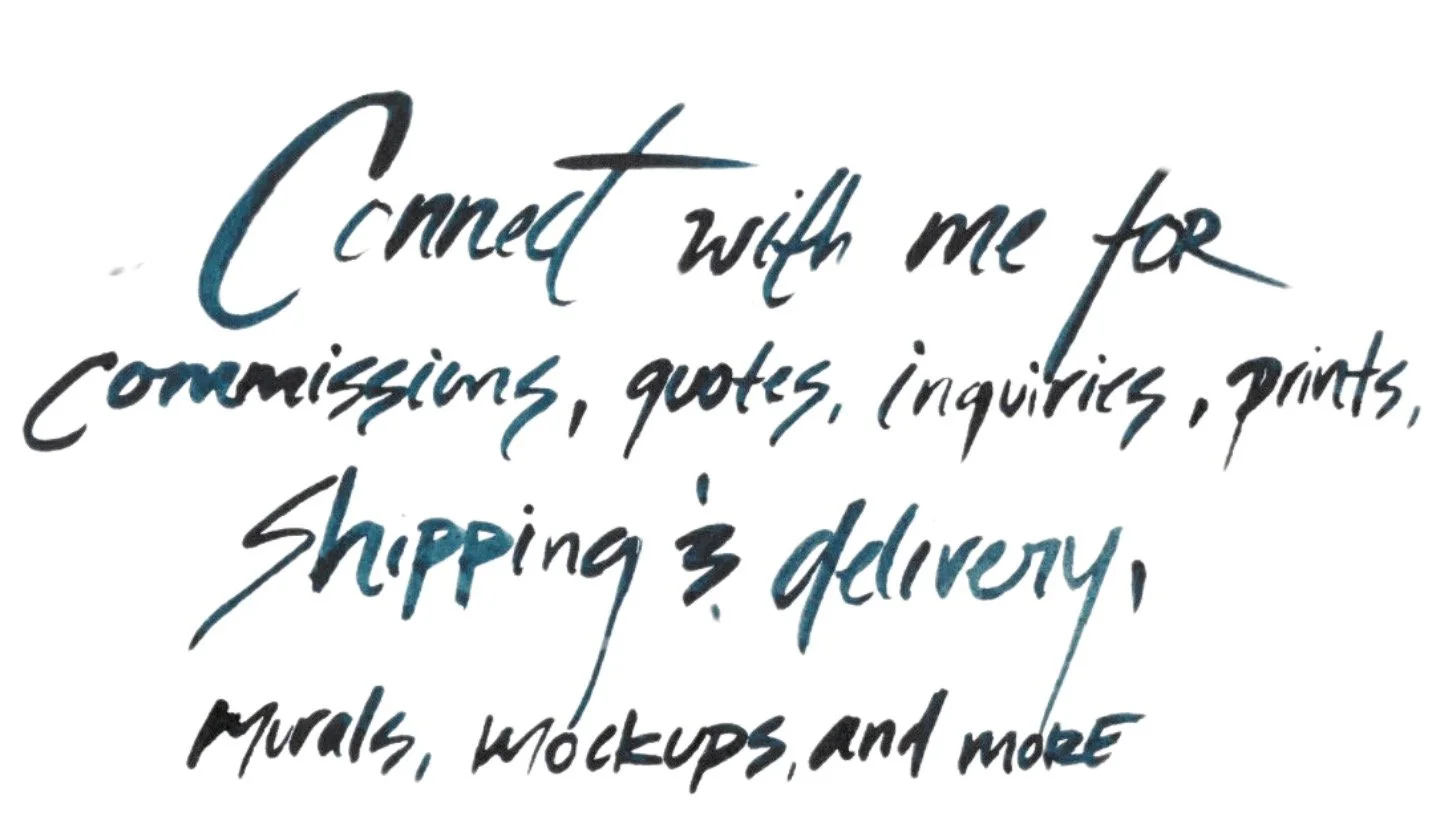 Connect with me for
commissions, quotes, inquiries, prints,
shipping & delivery,
murals, mockups, and more